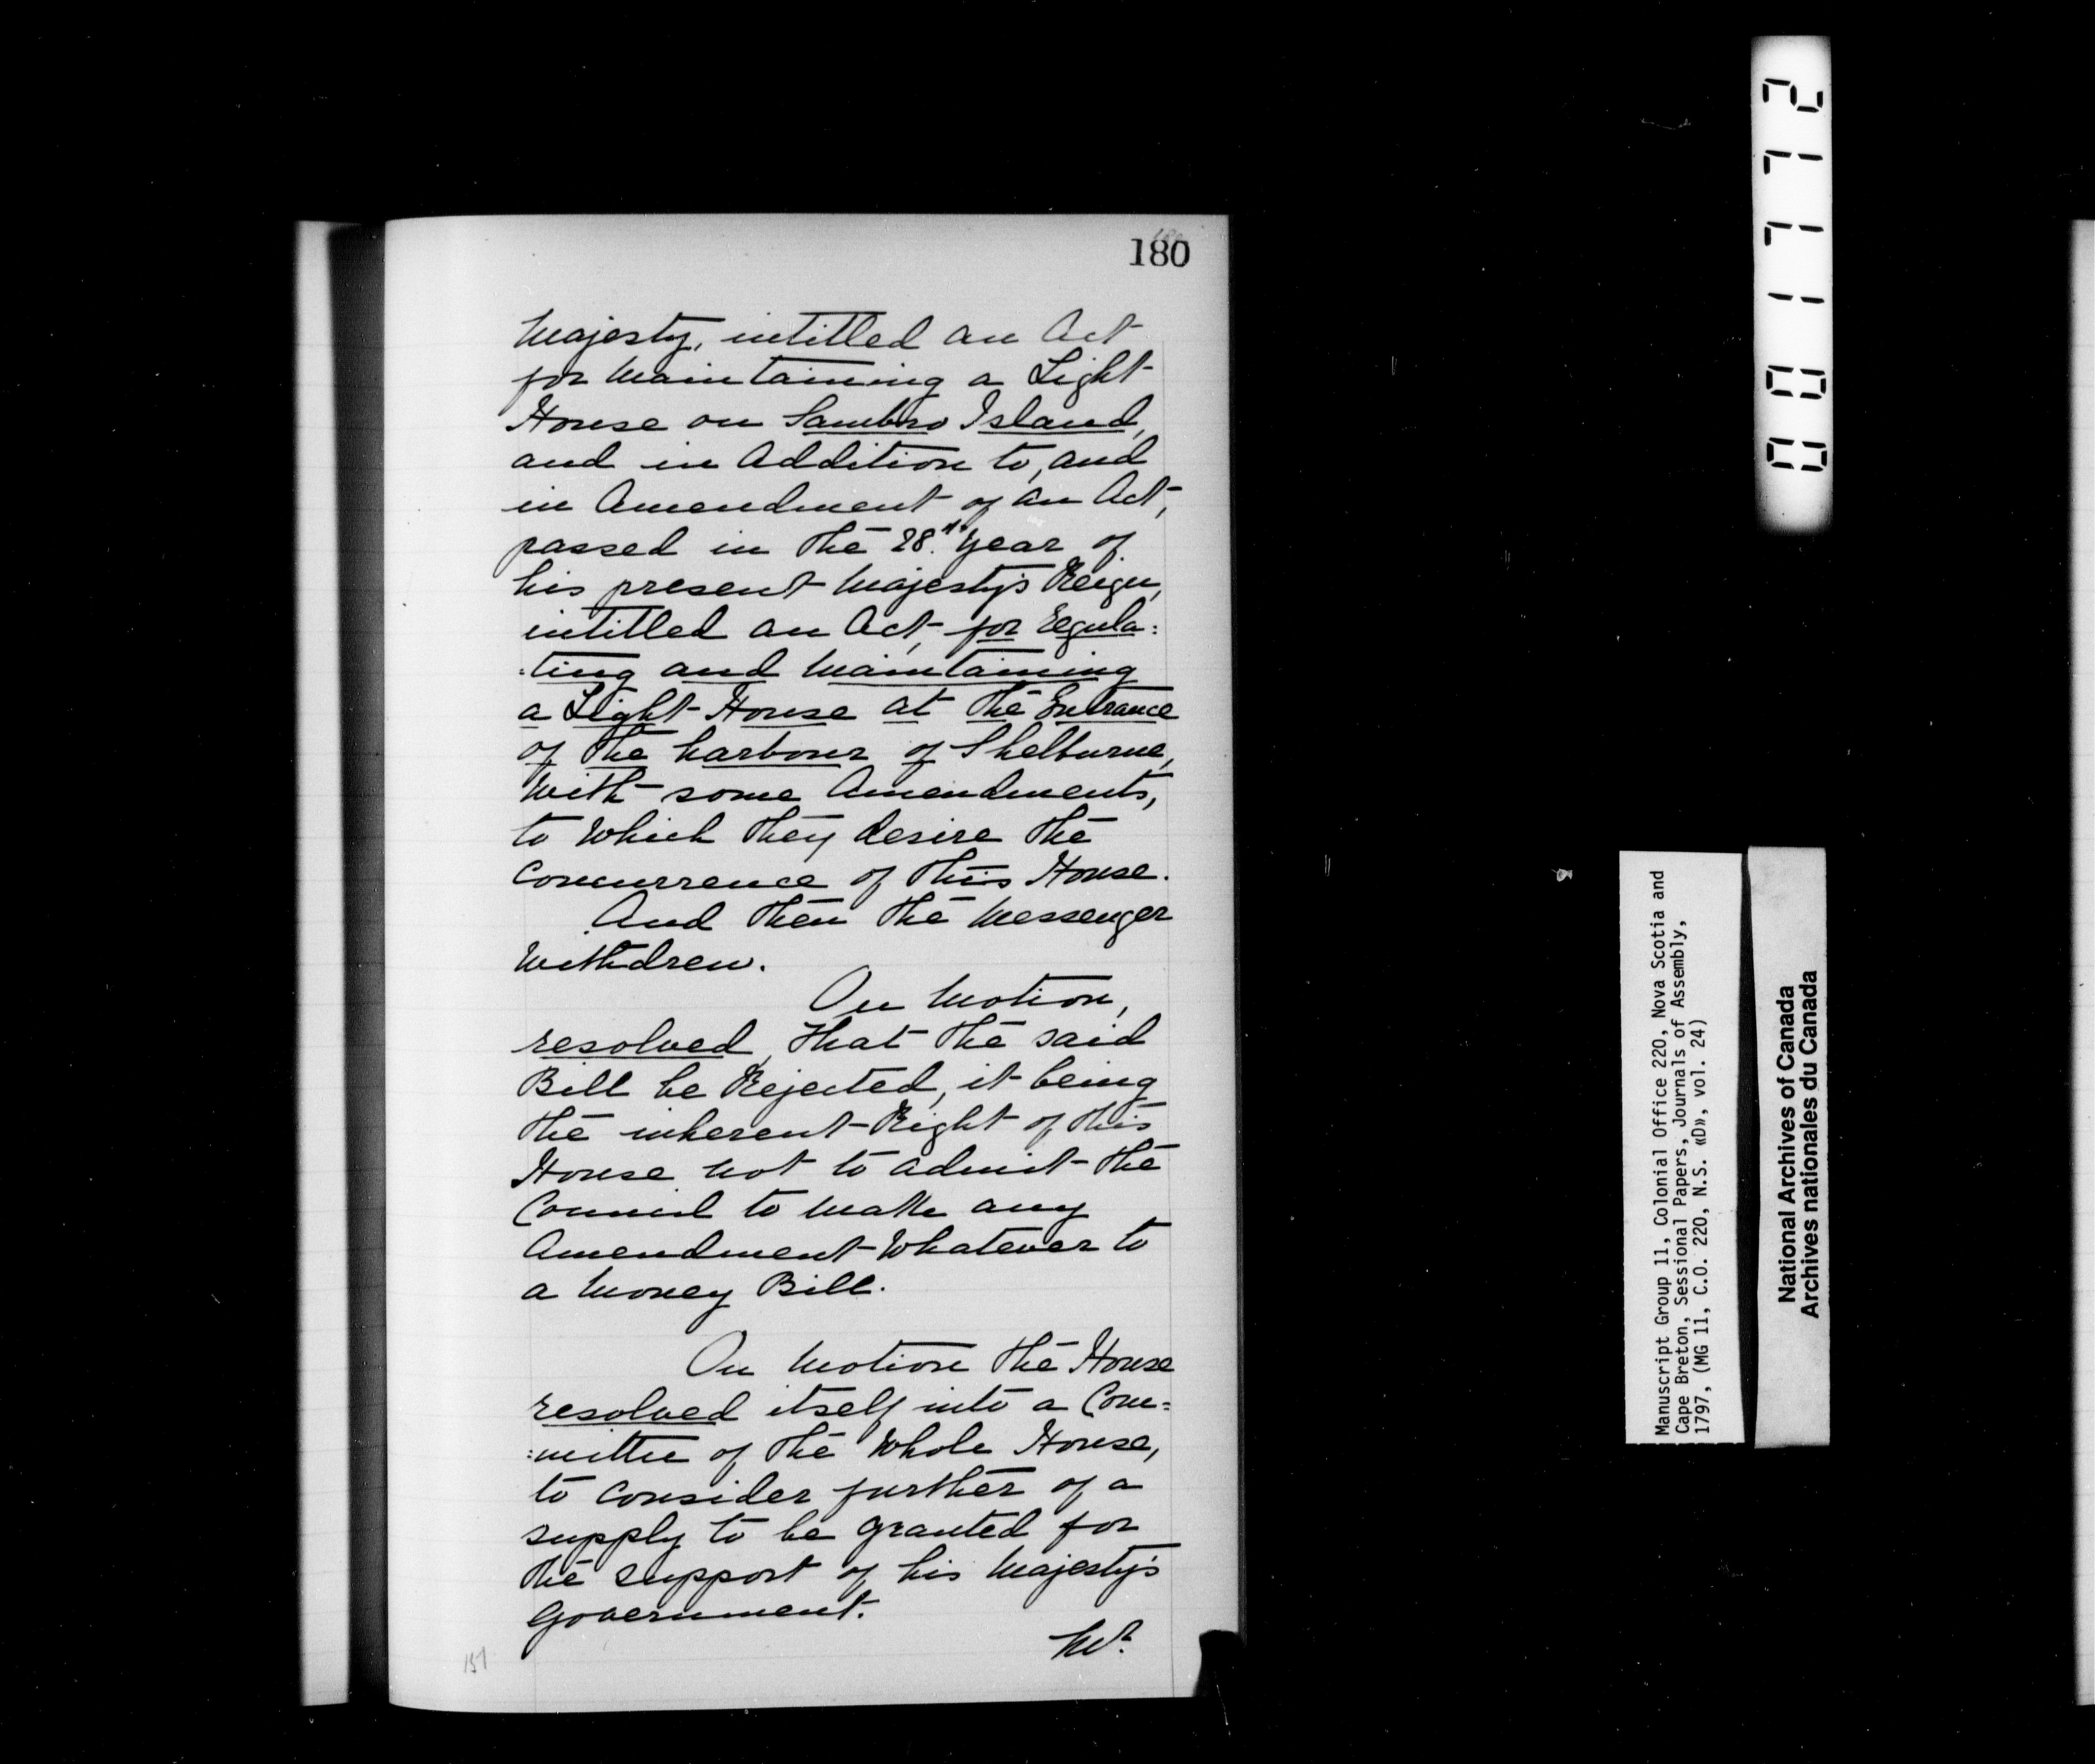 180
Majesty, intitled an Act
for Maintaining a Light
House on Sambro Island,
and in Addition to, and
in Amendment of an Act,
passed in the 28.th Year of
his present Majesty's Reign,
intitled an Act, for Regula:
:ting and Maintaining
a Light House at the Entrance
of the harbour of Shelburne,
With some Amendments,
to Which they desire the
Concurrence of this House.
And then the Messenger
Withdrew.
On Motion,
resolved, that the said
Bill be Rejected, it being
the inherent Right of this
House not to admit the
Council to Make any
Amendment Whatever to
a Money Bill.
On Motion the House
resolved itself into a Com:
:mittee of the Whole House,
to Consider further of a
supply to be granted for
the support of his Majesty's
Government.
Mr.
151
001772
Manuscript Group 11, Colonial Office 220, Nova Scotia and
Cape Breton, Sessional Papers, Journals of Assembly,
1797, (MG 11, C.O. 220, N.S. «D», vol. 24)
National Archives of Canada
Archives nationales du Canada